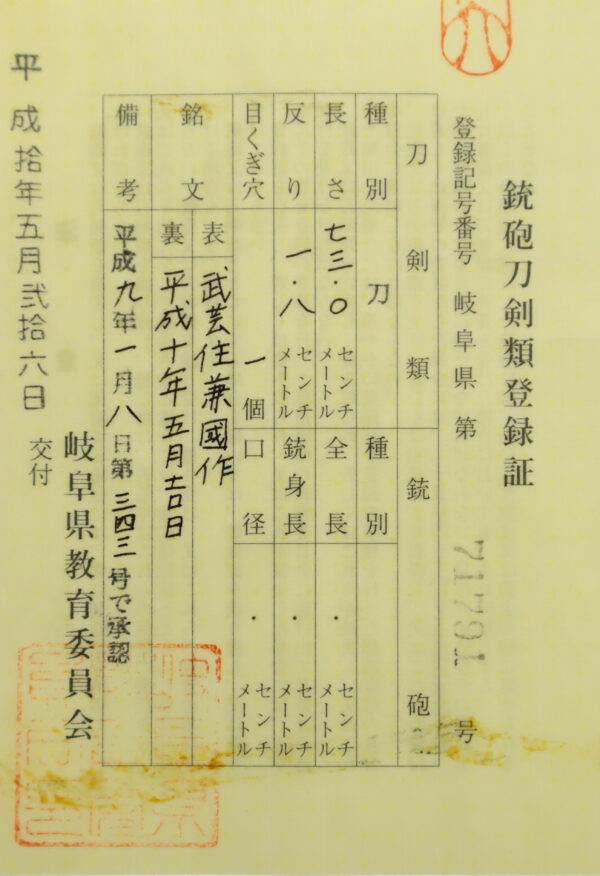 銃砲刀剣類登録証
登録記号番号 岐阜県 第 71791 号
刀剣類
銃砲
種別 刀
種別
長さ 七三.〇 センチメートル
全長 ・ センチメートル
反り 一.八 センチメートル
銃身長 ・ センチメートル
目くぎ穴 一個
口径 ・ センチメートル
銘文
表 武芸住兼國作
裏 平成十年五月吉日
備考 平成九年一月八日第三四三号で承認
岐阜県教育委員会
平成拾年五月弐拾六日 交付